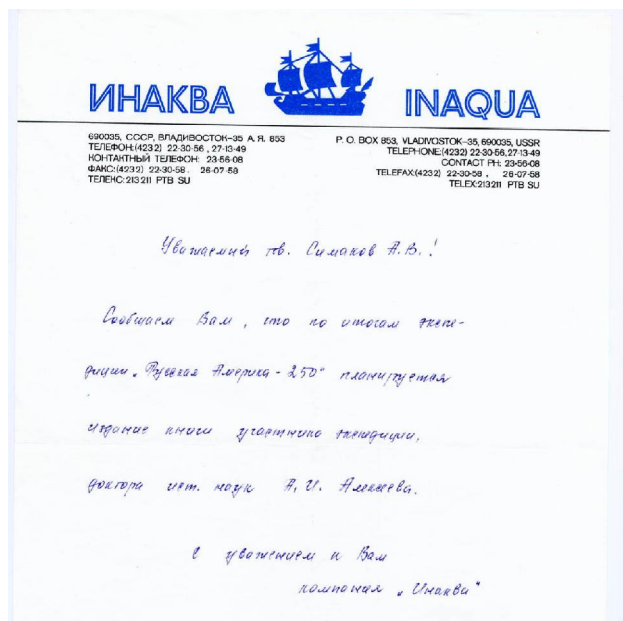 ИНАКВА
INAQUA
690035, СССР, ВЛАДИВОСТОК–35 А. Я. 853
ТЕЛЕФОН:(4232) 22-30-56 , 27-13-49
КОНТАКТНЫЙ ТЕЛЕФОН: 23-56-08
ФАКС:(4232) 22-30-58 , 26-07-58
ТЕЛЕКС:213211 PTB SU
P. O. BOX 853, VLADIVOSTOK–35, 690035, USSR
TELEPHONE:(4232) 22-30-56,27-13-49
CONTACT PH: 23-56-08
TELEFAX:(4232) 22-30-58 , 26-07-58
TELEX:213211 PTB SU
Уважаемый тв. Симаков А.В. !
Сообщаем Вам , что по итогам экспе-
диции „Русская Америка - 250“ планируется
издание книги участника экспедиции,
доктора ист. наук А. И. Алексеева.
С уважением к Вам
компания „Инаква“